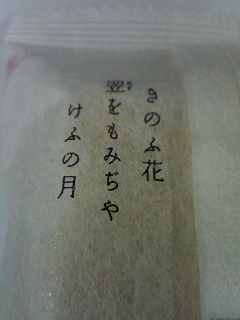 きのふ花
翌をもみぢや
けふの月